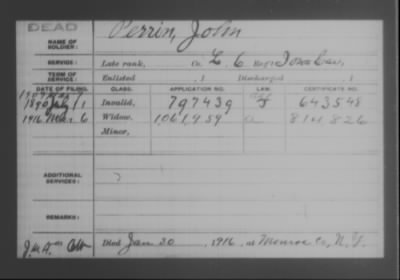 DEAD
Perrin, John
NAME OF SOLDIER:
SERVICE: Late rank, Co. L. 6 Reg't Iowa Cav,
TERM OF SERVICE: Enlisted , 1 Discharged , 1
DATE OF FILING. CLASS. APPLICATION NO. LAW. CERTIFICATE NO.
1890 July 11 Invalid, 797439 643548
1916 Mar 6 Widow, 1061959 a 814,826
Minor,
ADDITIONAL SERVICES:
REMARKS:
Died Jan 30, 1916, at Monroe Co, N.Y.